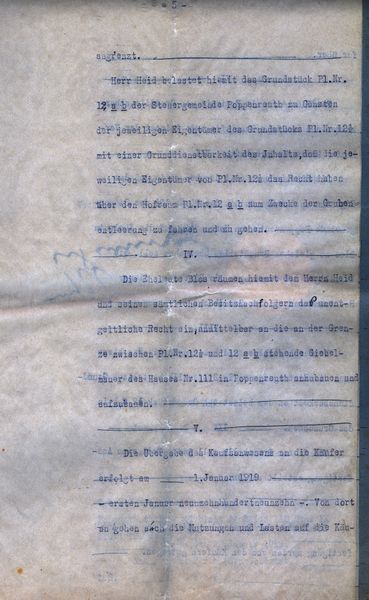 - 5 -
angrenzt.
Herr Heid belastet hiemit das Grundstück Pl.Nr.
12 a b der Steuergemeinde Poppenreuth zu Gunsten
der jeweiligen Eigentümer des Grundstücks Pl.Nr.12½
mit einer Grunddienstbarkeit des Inhalts,daß die je-
weiligen Eigentümer von Pl.Nr.12½ das Recht haben
über den Hofraum Pl.Nr.12 a b zum Zwecke der Gruben-
entleerung zu fahren und zu gehen.
IV.
Die Eheleute Blos räumen hiemit dem Herrn Heid
und seinen sämtlichen Besitznachfolgern das unent-
geltliche Recht ein,unmittelbar an die an der Gren-
ze zwischen Pl.Nr.12½ und 12 a b stehende Giebel-
mauer des Hauses Nr.111 in Poppenreuth anzubauen und
aufzubauen.
V.
Die Übergabe des Kaufsanwesens an die Käufer
erfolgt am 1.Januar 1919
- ersten Januar neunzehnhundertneunzehn -. Von dort
an gehen auch die Nutzungen und Lasten auf die Käu-